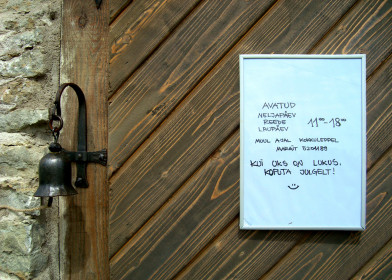 AVATUD
NELJAPÄEV
REEDE 11⁰⁰-18⁰⁰
LAUPÄEV
MUUL AJAL KOKKULEPPEL
MARGIT 5204189
KUI UKS ON LUKUS,
KOPUTA JULGELT!